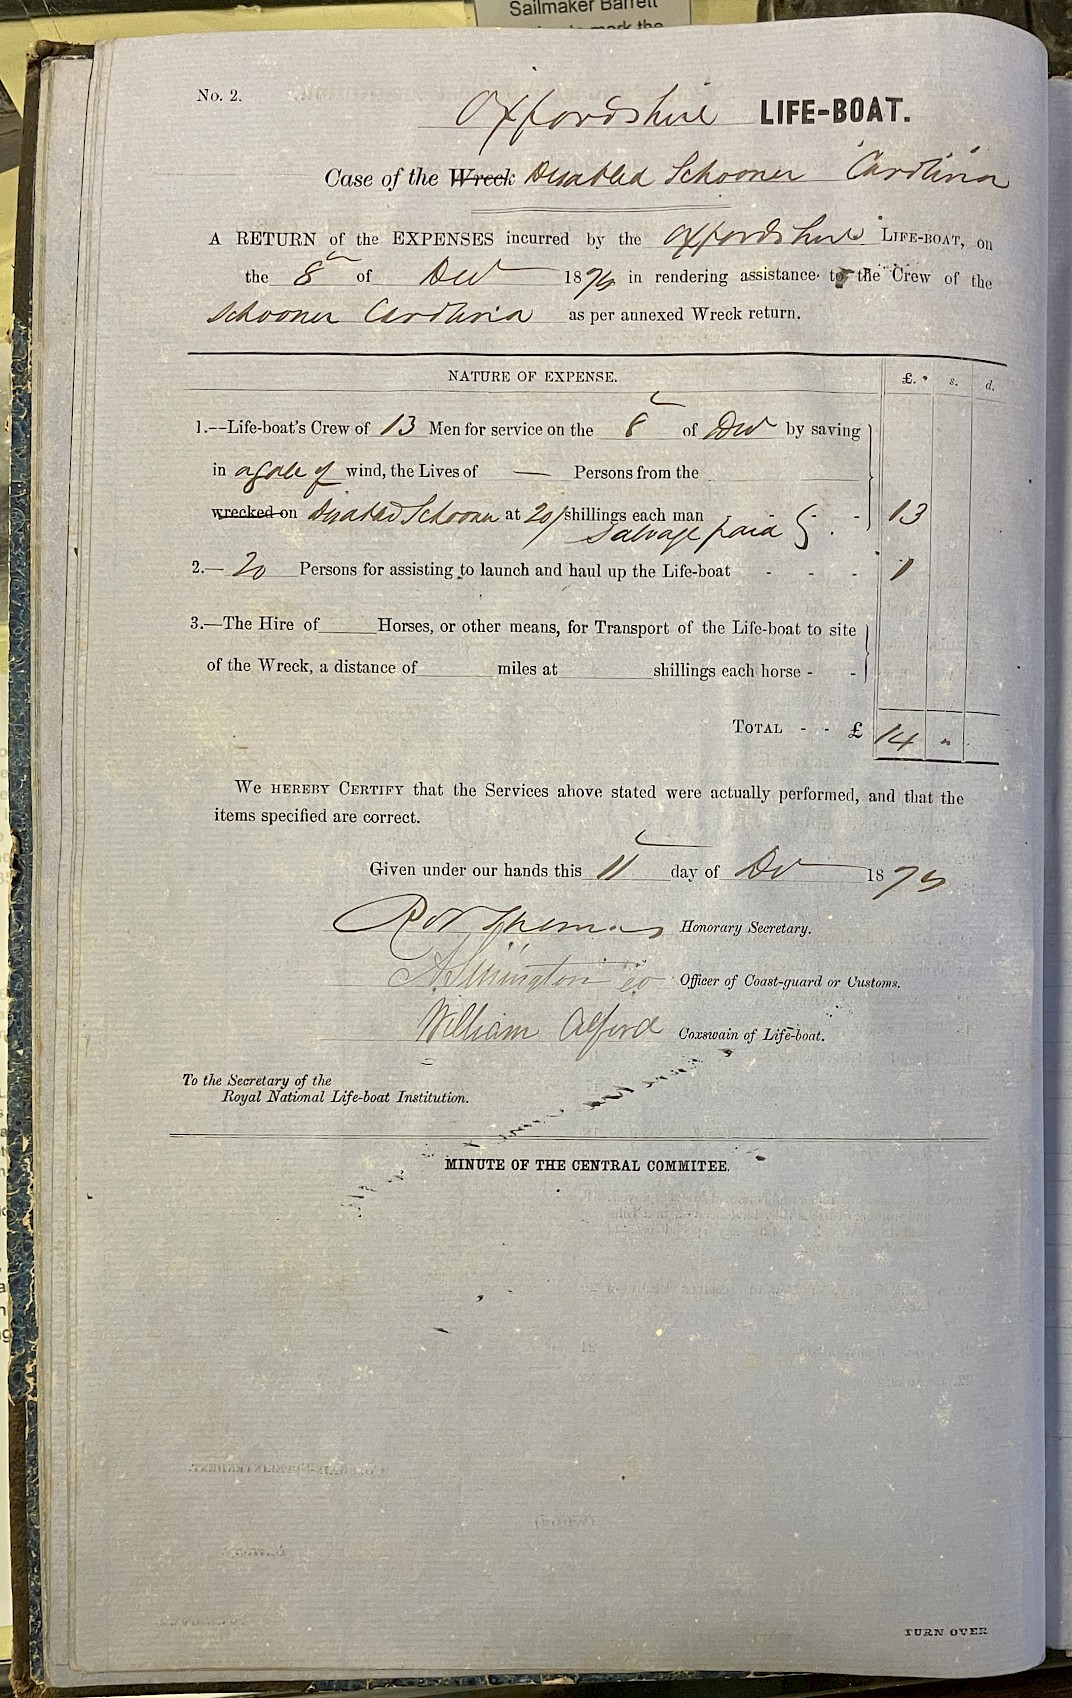 Sailmaker Barrett
mark the
No. 2.
Oxfordshire LIFE-BOAT.
Case of the Wreck Disabled Schooner Carolina
A RETURN of the EXPENSES incurred by the Oxfordshire LIFE-BOAT, on
the 8 of Dec 1874 in rendering assistance to the Crew of the
Schooner Carolina as per annexed Wreck return.
NATURE OF EXPENSE. £. s. d.
1.—Life-boat's Crew of 13 Men for service on the 8 of Dec by saving
in a gale of wind, the Lives of — Persons from the
wrecked on disabled Schooner at 20/ shillings each man - - - 13
Salvage paid
2.— 20 Persons for assisting to launch and haul up the Life-boat - - - 1
3.—The Hire of Horses, or other means, for Transport of the Life-boat to site
of the Wreck, a distance of miles at shillings each horse - -
TOTAL - - £ 14 "
WE HEREBY CERTIFY that the Services above stated were actually performed, and that the
items specified are correct.
Given under our hands this 11 day of Dec 1874
Thomas Honorary Secretary.
Officer of Coast-guard or Customs.
William Alford Coxswain of Life-boat.
To the Secretary of the
Royal National Life-boat Institution.
MINUTE OF THE CENTRAL COMMITEE.
TURN OVER